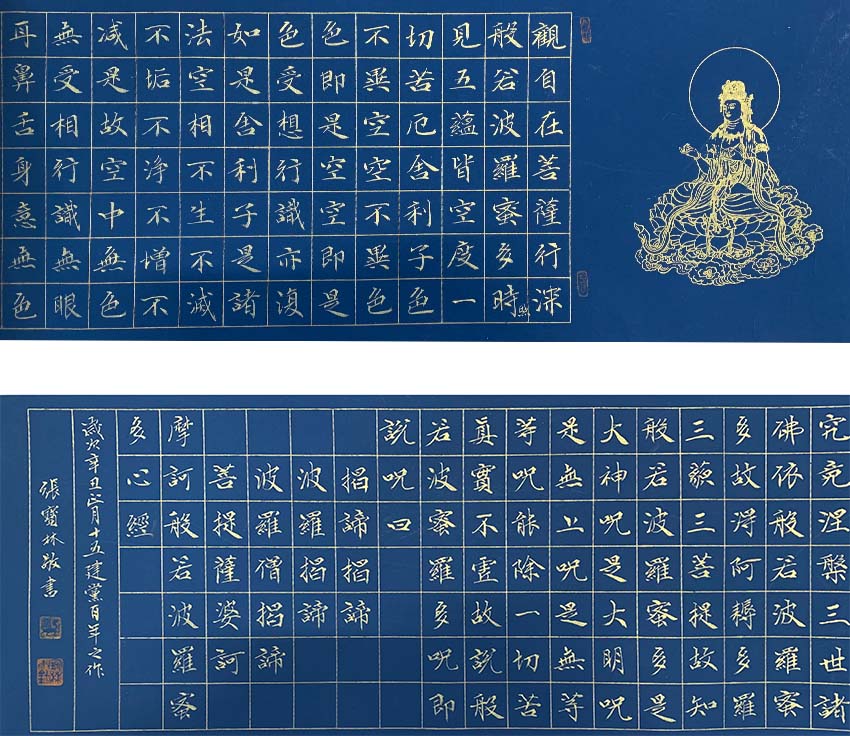 觀自在菩薩行深
般若波羅蜜多時照
見五蘊皆空度一
切苦厄舍利子色
不異空空不異色
色即是空空即是
色受想行識亦復
如是舍利子是諸
法空相不生不滅
不垢不浄不增不
減是故空中無色
無受相行識無眼
耳鼻舌身意無色
究竟涅槃三世諸
佛依般若波羅蜜
多故得阿耨多羅
三藐三菩提故知
般若波羅蜜多是
大神呪是大明呪
是無上呪是無等
等呪能除一切苦
真實不虛故說般
若波蜜羅多呪即
說呪曰
揭諦揭諦
波羅揭諦
波羅僧揭諦
菩提薩婆訶
摩訶般若波羅蜜
多心經
歲次辛丑正月十五建黨百年之作
張寶林敬書